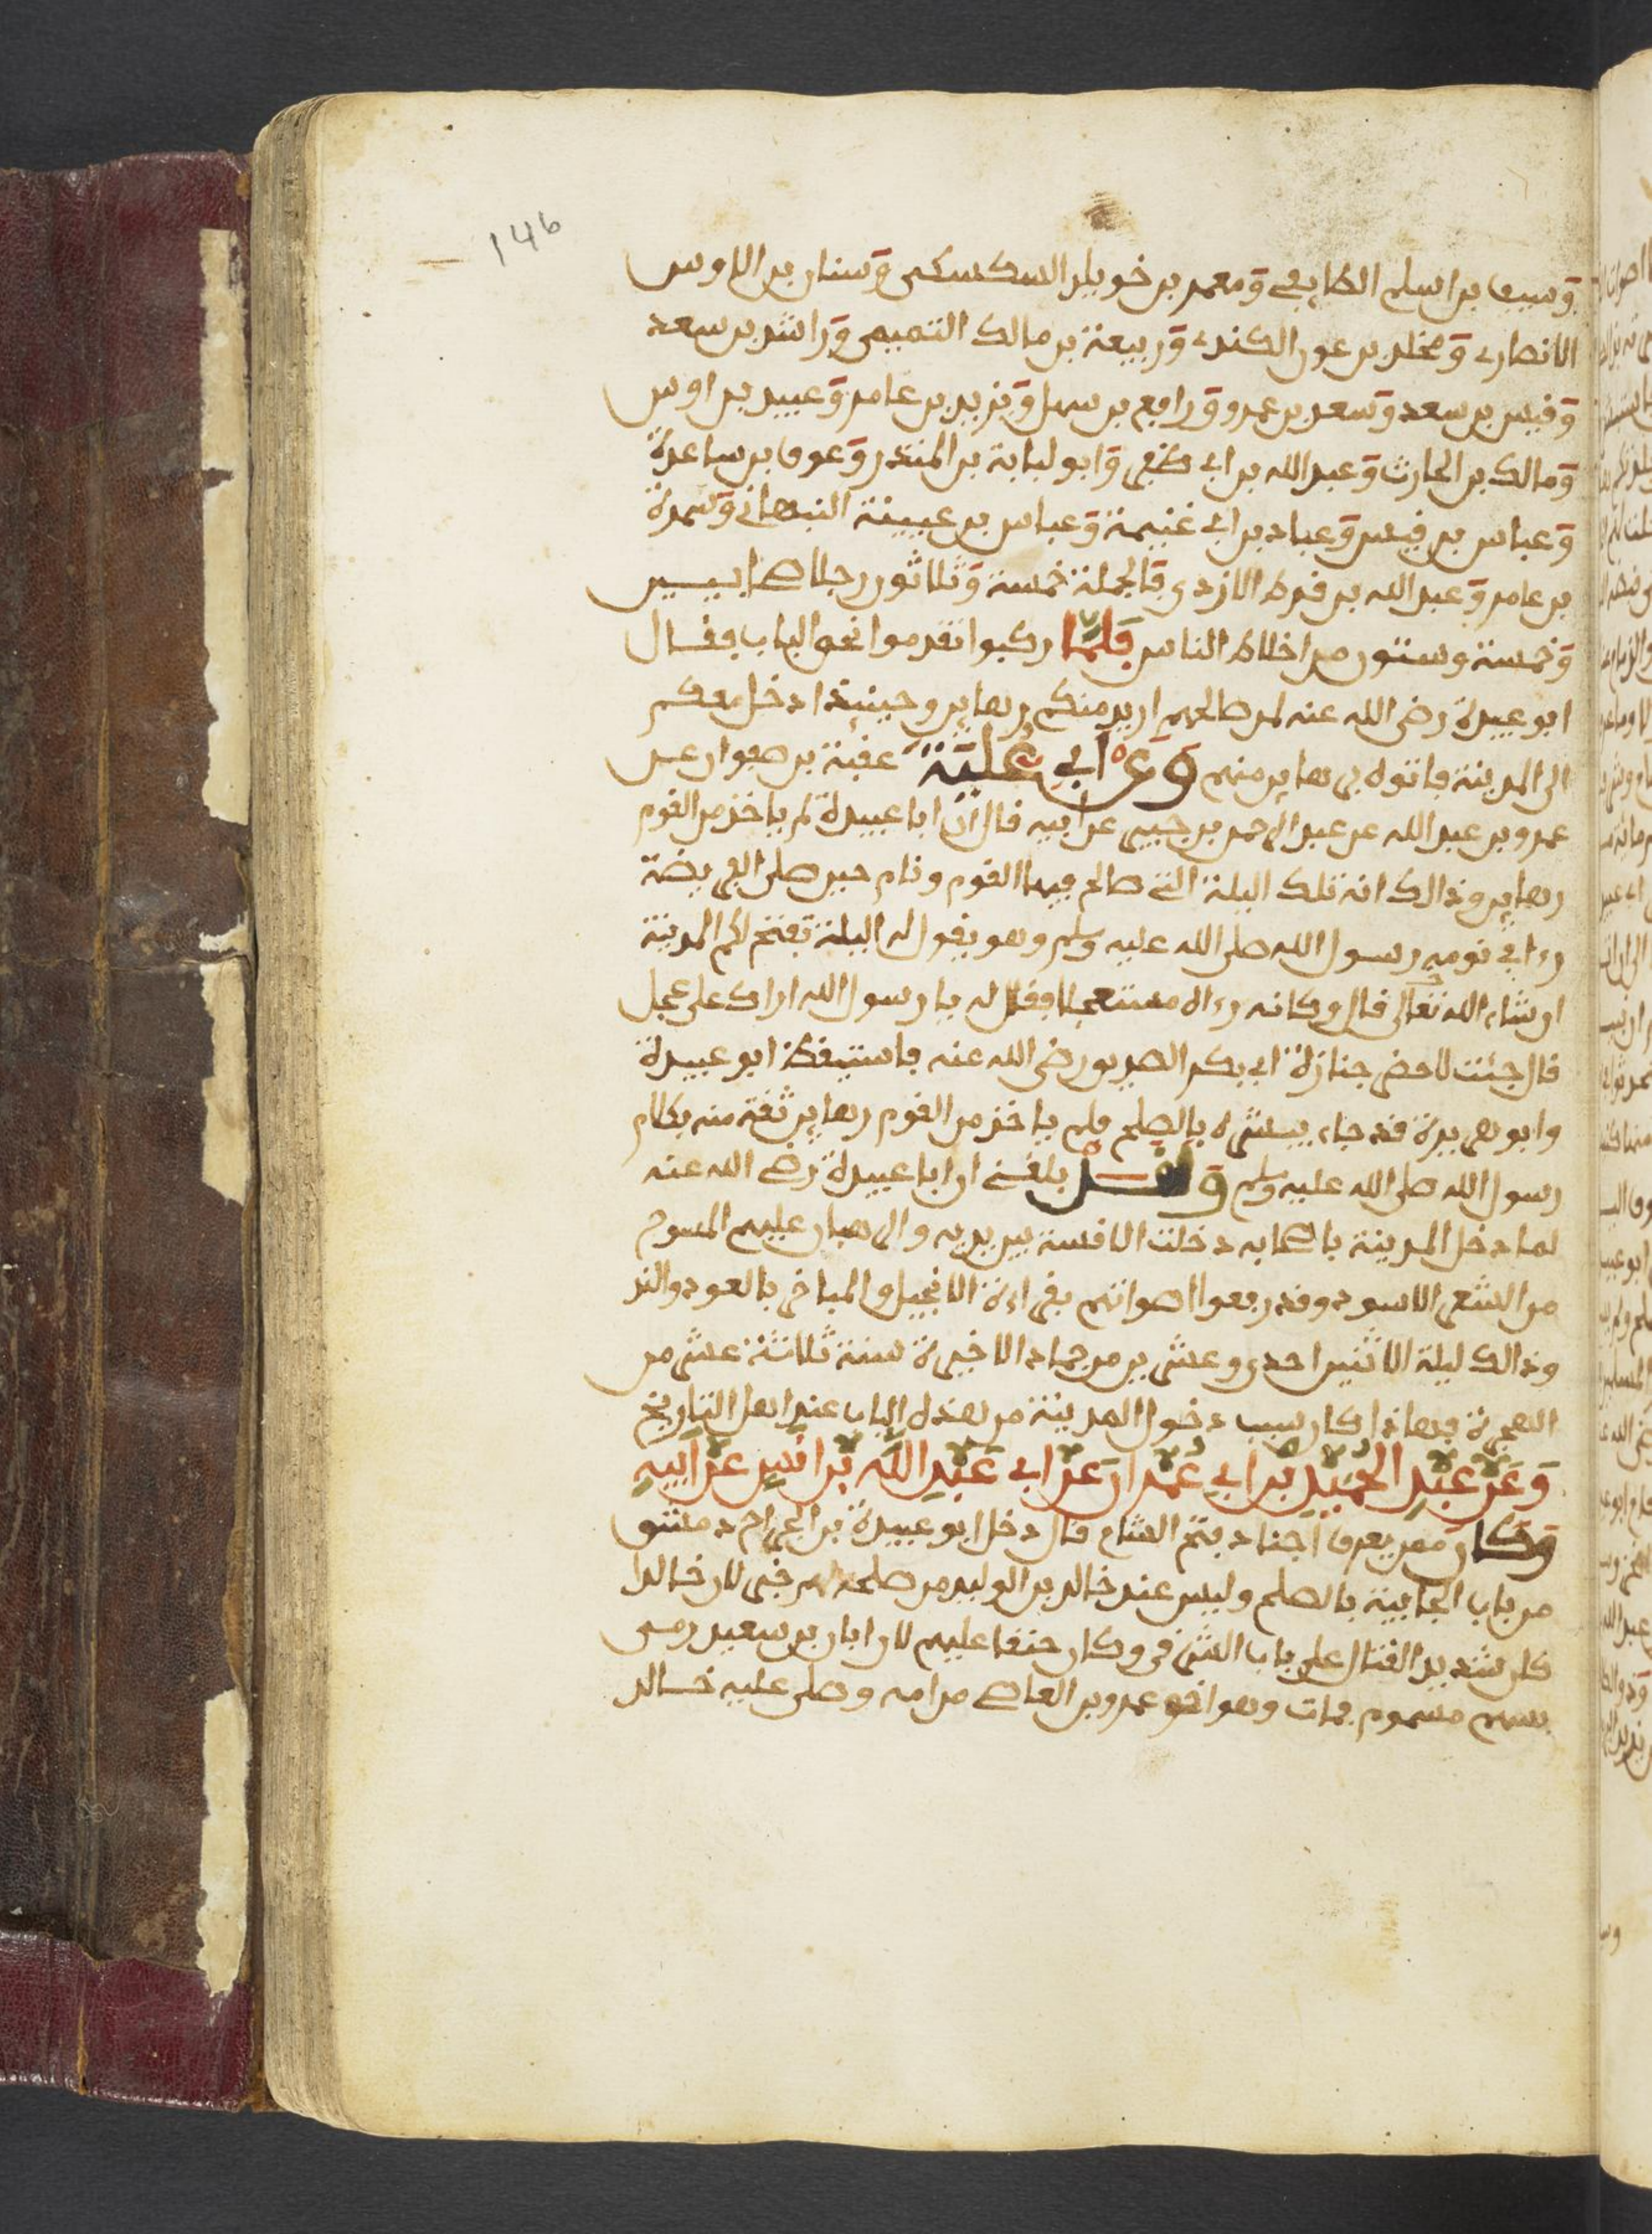 146
وسيف بن اسلم الطايفي ومعمر بن خويلد السكسكي وسنان بن الاوس
الانصاري ومخلد بن عون الكندي وربيعة بن مالك التميمي وراشد بن سعد
وقيس بن سعد وسعد بن عمرو ورافع بن سهل ويزيد بن عامر وعبيد بن اوس
ومالك بن الحارث وعبد الله بن ابي طفي وابو لبابة بن المنذر وعوف بن ساعدة
وعباس بن قيس وعباد بن ابي غنيمة وعباس بن عيينة النبهاني وسمرة
بن عامر وعبد الله بن قرط الازدي فالجملة خمسة وثلاثون رجلا صحابيين
وخمسة وستون من اخلاط الناس فلما ركبوا تقدموا نحو الباب فقال
ابو عبيدة رضي الله عنه لمن صالحهم اريد منكم رهاين وحينيذ ادخل معكم
الى المدينة فاتوه برهاين منهم وعن ابي عقبة بن صفوان عن
عمرو بن عبد الله عن عبد الرحمن بن جبير عن ابيه قال ان ابا عبيدة لم ياخذ من القوم
رهاين وذالك انه تلك اليلة التي صالح فيها القوم ونام حين صلى الفريضة
رءا في نومه رسول الله صلى الله عليه وسلم وهو يقول له اليلة تفتح لكم المدينة
ان شاء الله تعالى قال وكانه رءاه مستعجلا فقال له يا رسول الله اراك على عجل
قال جئت لاحضر جنازة ابي بكر الصديق رضي الله عنه فاستيقظ ابو عبيدة
وابو هريرة قد جاء يبشره بالصلح فلم ياخذ من القوم رهاين ثقة منه بكلام
رسول الله صلى الله عليه وسلم وقال بلغني ان ابا عبيدة رضي الله عنه
لما دخل المدينة باصحابه دخلت الاقسة بين يديه والرهبان عليهم المسوح
من الشعر الاسود وقد رفعوا اصواتهم بقراءة الانجيل والمباخر بالعود والند
وذالك ليلة الاثنين احدى وعشرين من جماد الاخيرة سنة ثلاثة عشر من
الهجرة فهاذا كان سبب دخول المدينة من هذه الباب عند اهل التاريخ
وعن عبد الحميد بن ابي عمران عن ابي عبد الله بن انس عن ابيه
وكان ممن يعرف اجناد بفتح الشام قال دخل ابو عبيدة بن الجراح دمشق
من باب الجابية بالصلح وليس عند خالد بن الوليد من صلحهم خبر لان خالدا
كان شديد القتال على باب الشرقي وكان حنقا عليهم لان ابان بن سعيد رمي
بسهم مسموم فمات وهو اخو عمرو بن العاصي من امه وصلى عليه خالد